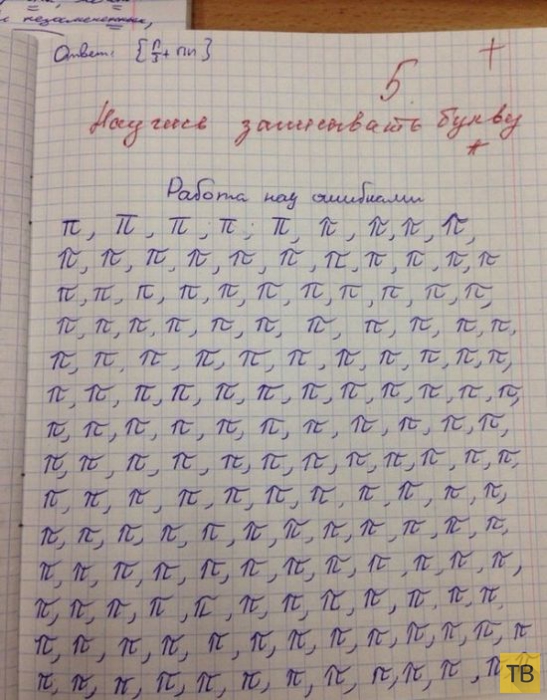 незамеченных,
Ответ: {π/3 + πn}
5 +
Научись записывать букву
π
Работа над ошибками
π, π, π, π, π, π, π, π, π,
π, π, π, π, π, π, π, π, π, π, π
π, π, π, π, π, π, π, π, π, π, π,
π, π, π, π, π, π, π, π, π, π, π,
π, π, π, π, π, π, π, π, π, π, π,
π, π, π, π, π, π, π, π, π, π, π, π,
π, π, π, π, π, π, π, π, π, π, π,
π, π, π, π, π, π, π, π, π, π, π, π,
π, π, π, π, π, π, π, π, π, π, π,
π, π, π, π, π, π, π, π, π, π, π, π,
π, π, π, π, π, π, π, π, π, π, π, π,
π, π, π, π, π, π, π, π, π, π, π, π,
π, π, π, π, π, π, π, π, π, π, π, π, π
π, π, π, π, π, π, π, π, π, π, π, π
ТВ